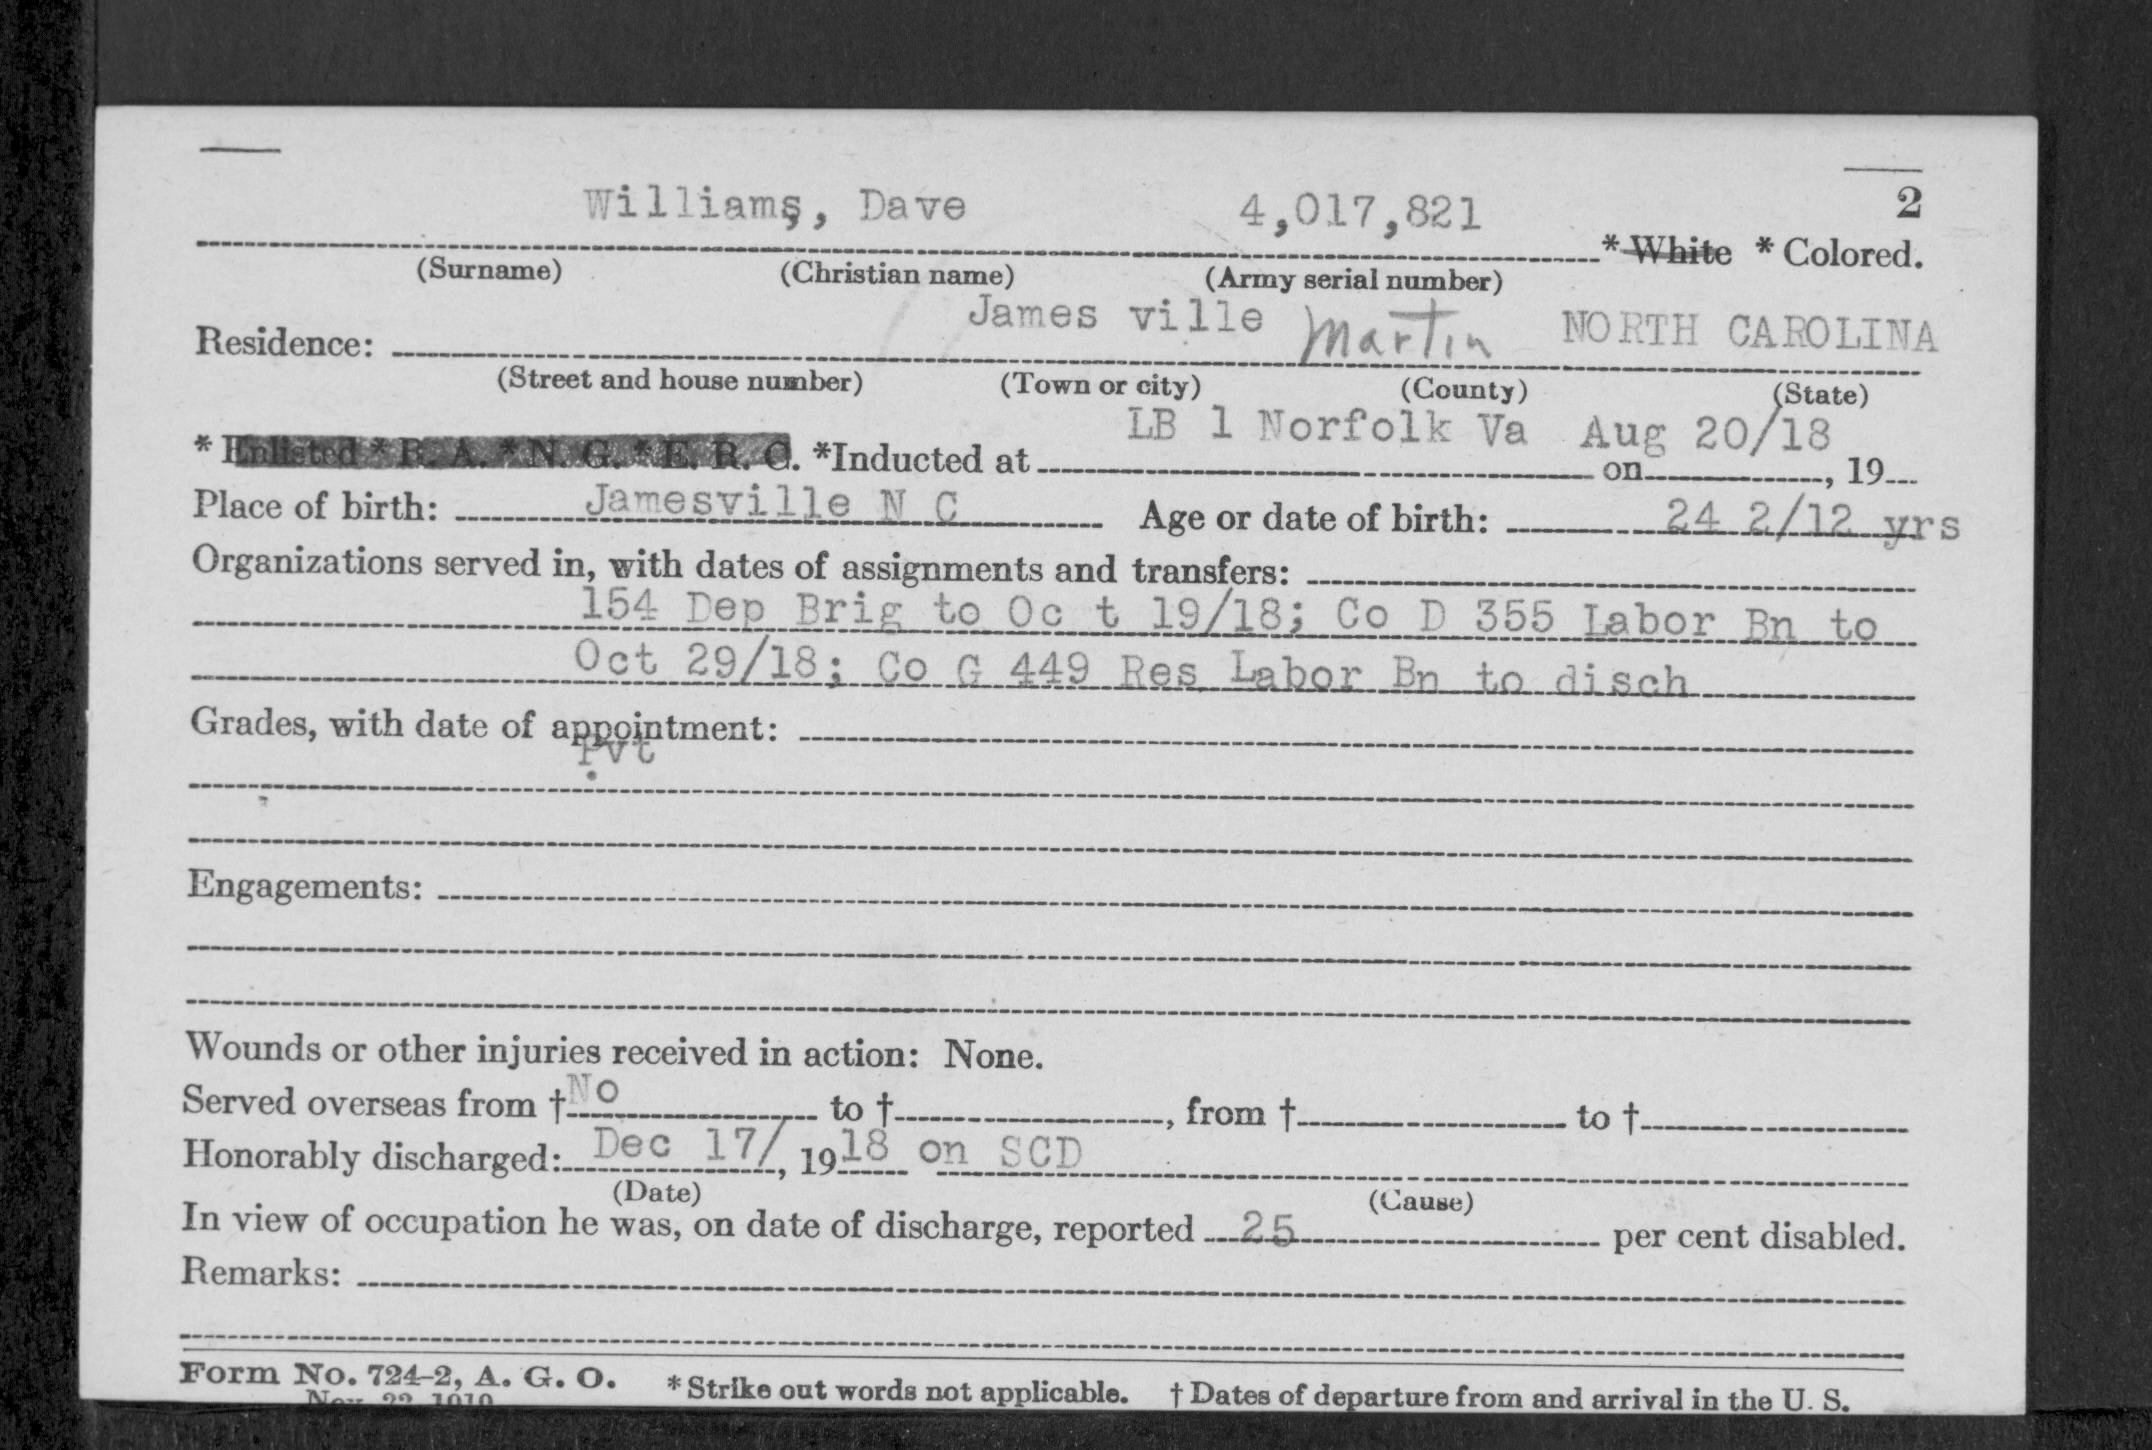 2
Williams, Dave 4,017,821
* White * Colored.
(Surname) (Christian name) (Army serial number)
James ville Martin NORTH CAROLINA
Residence:
(Street and house number) (Town or city) (County) (State)
LB 1 Norfolk Va Aug 20/18
* Enlisted * R. A. * N. G. * E. R. C. *Inducted at on , 19
Place of birth: Jamesville N C Age or date of birth: 24 2/12 yrs
Organizations served in, with dates of assignments and transfers:
154 Dep Brig to Oc t 19/18; Co D 355 Labor Bn to
Oct 29/18; Co G 449 Res Labor Bn to disch
Grades, with date of appointment:
Pvt
Engagements:
Wounds or other injuries received in action: None.
Served overseas from † No to † , from † to †
Honorably discharged: Dec 17/ , 1918 on SCD
(Date) (Cause)
In view of occupation he was, on date of discharge, reported 25 per cent disabled.
Remarks:
Form No. 724-2, A. G. O. * Strike out words not applicable. † Dates of departure from and arrival in the U. S.
Nov. 22 1919